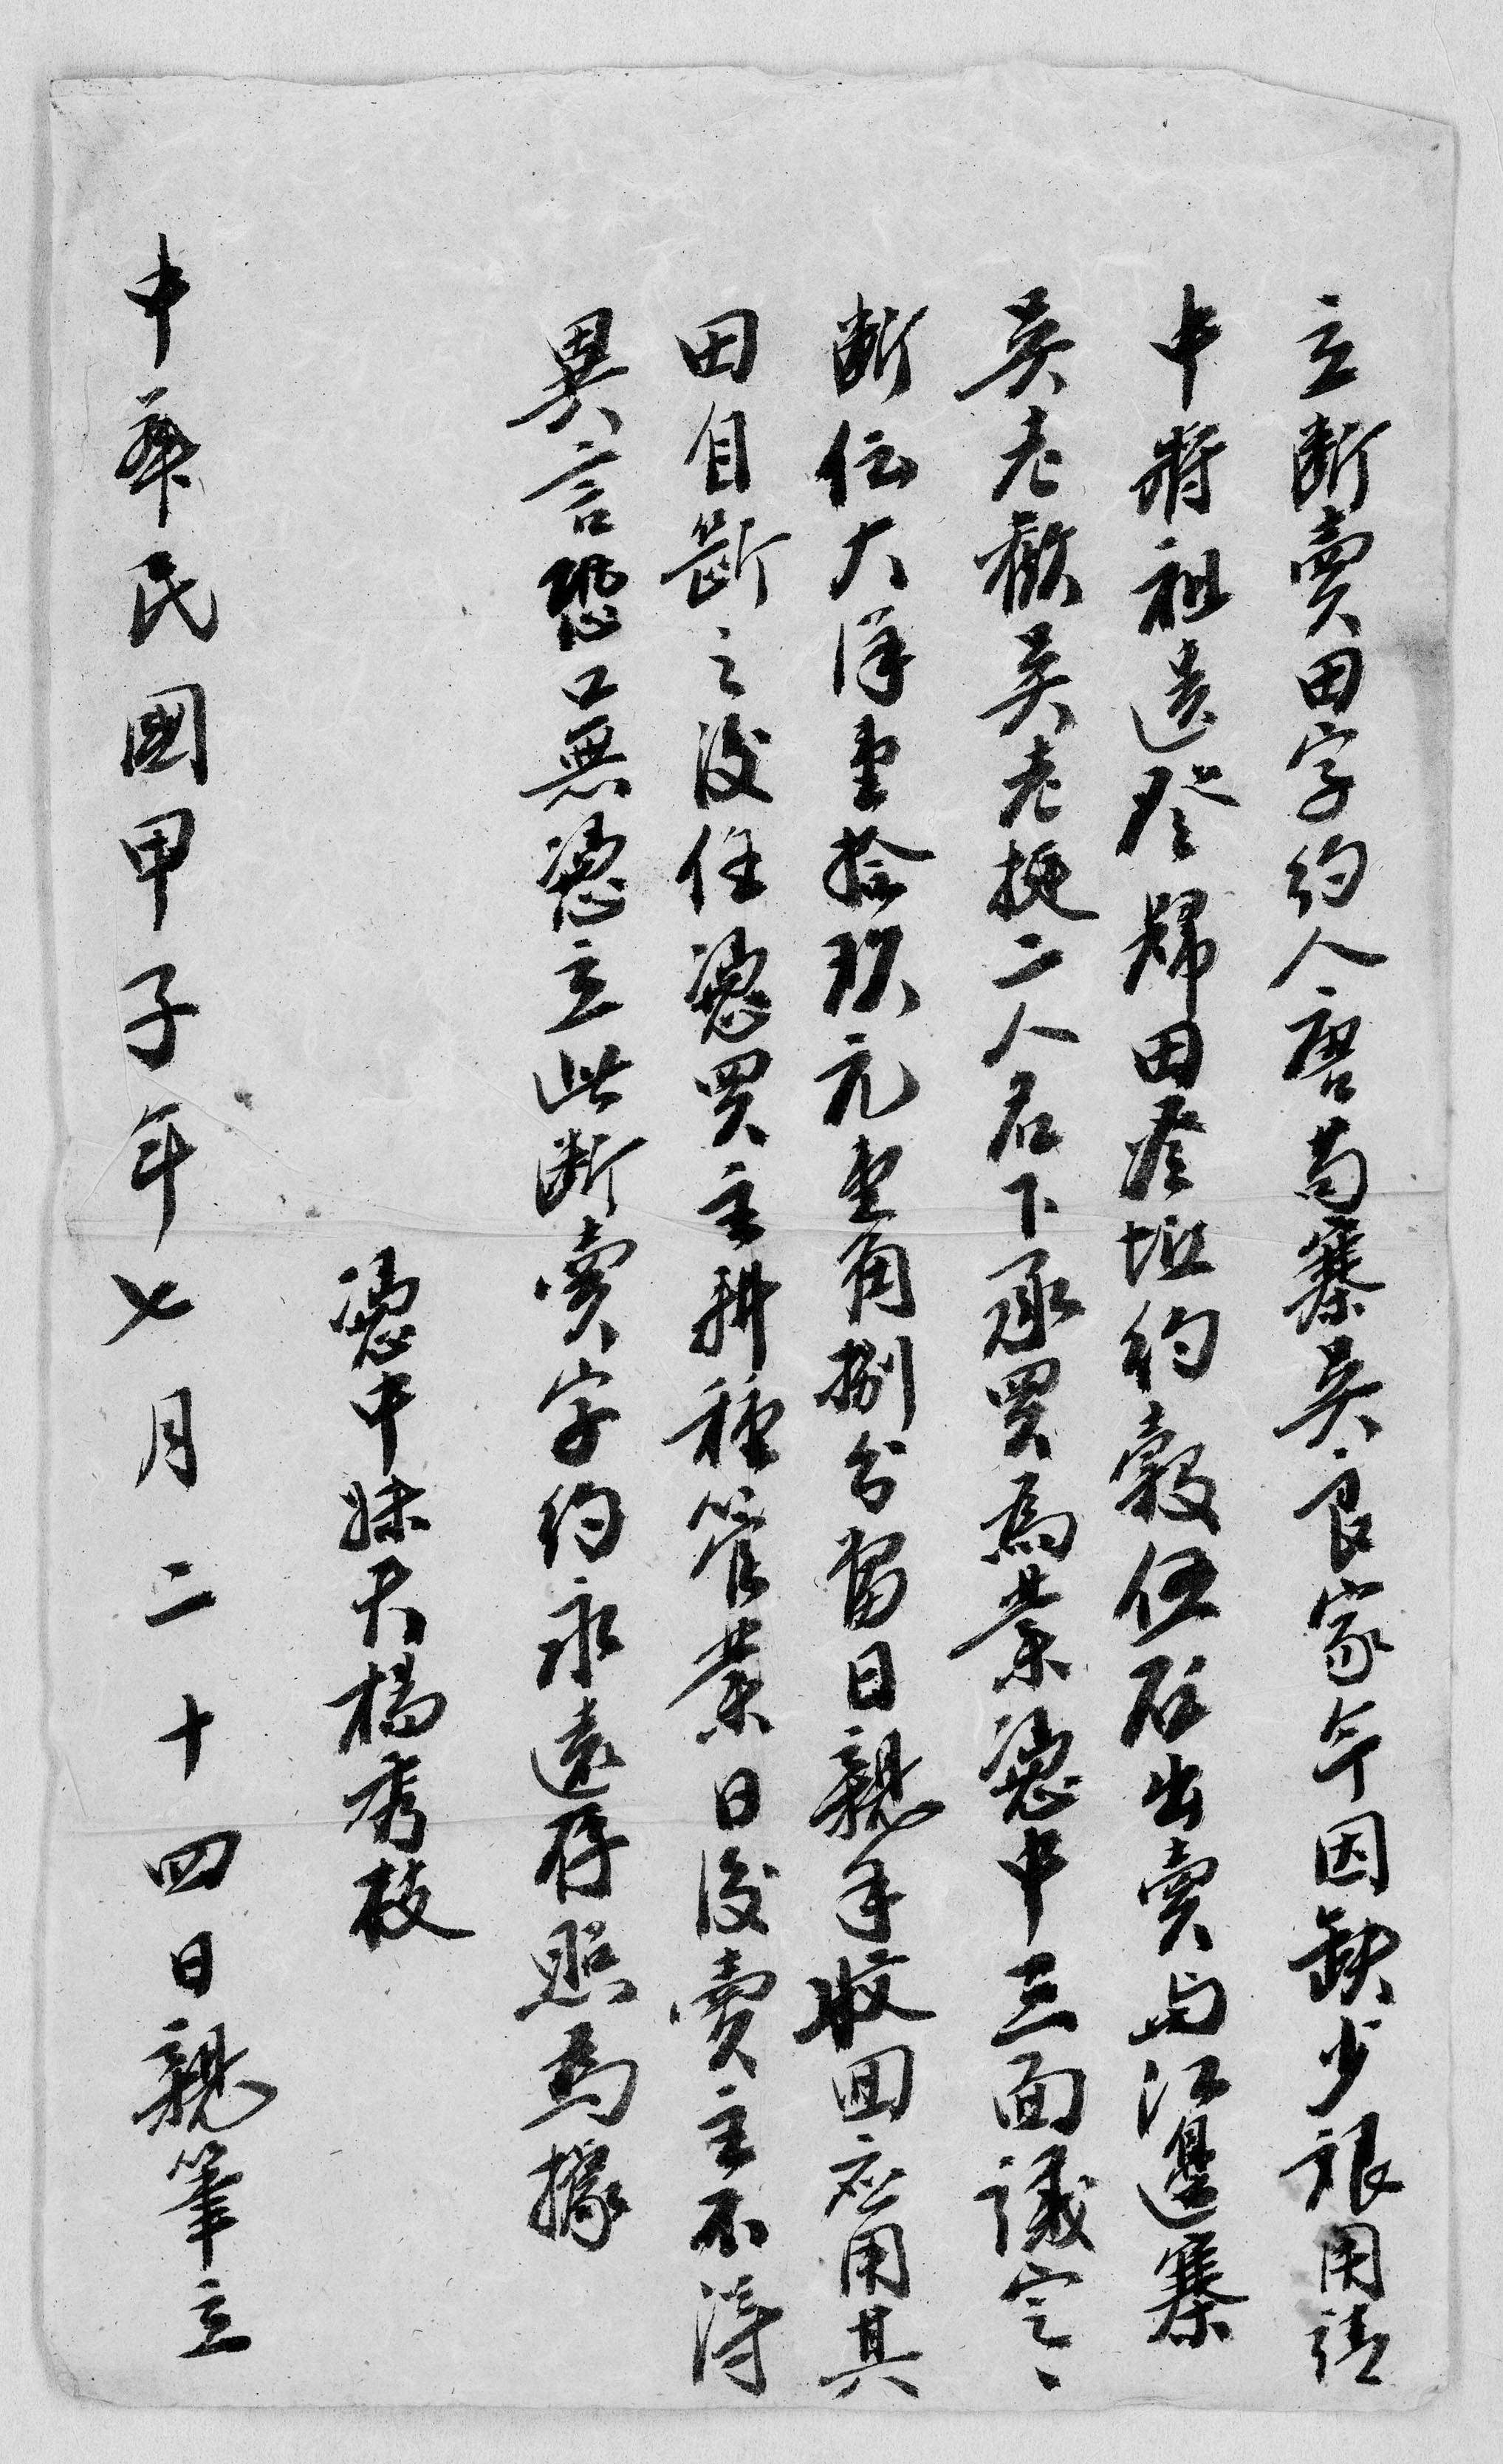 立断賣田字約人唐苟寨吳良家今因缺少銀用請
中將祖遺登歸田壹坵約穀伍石出賣与江邊寨
吳老㪘吳老挺二人名下承買爲業憑中三面議定、
断伝大洋壹拾玖元壹角捌分當日親手收回應用其
田自斷之後任憑買主耕種管業日後賣主不得
異言恐口無憑立此断賣字約永遠存照爲據
憑中妹夫楊秀枝
中華民國甲子年七月二十四日親筆立